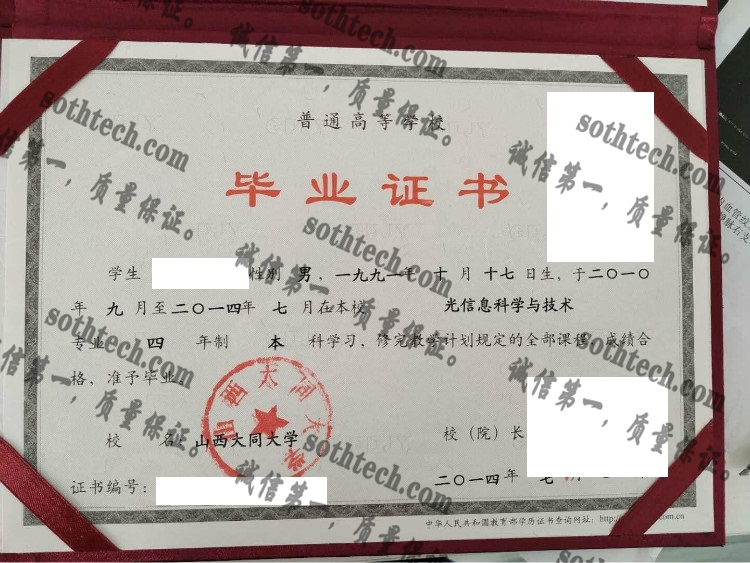 普通高等学校
毕业证书
学生 性别 男，一九九一年 十 月 十七 日生，于二〇一〇
年 九 月至二〇一四年 七 月在本校 光信息科学与技术
专业 四 年制 本 科学习，修完教学计划规定的全部课程，成绩合
格，准予毕业
山西大同大学
校 名 山西大同大学 校（院）长
二〇一四年 七 月
证书编号：
中华人民共和国教育部学历证书查询网址：http:// .com.cn
sothtech.com
诚信第一，质量保证。
sothtech.com
诚信第一，质量保证。
sothtech.com
诚信第一，质量保证。
sothtech.com
诚信第一，质量保证。
sothtech.com
诚信第一，质量保证。
sothtech.com
诚信第一，质量保证。
sothtech.com
诚信第一，质量保证。